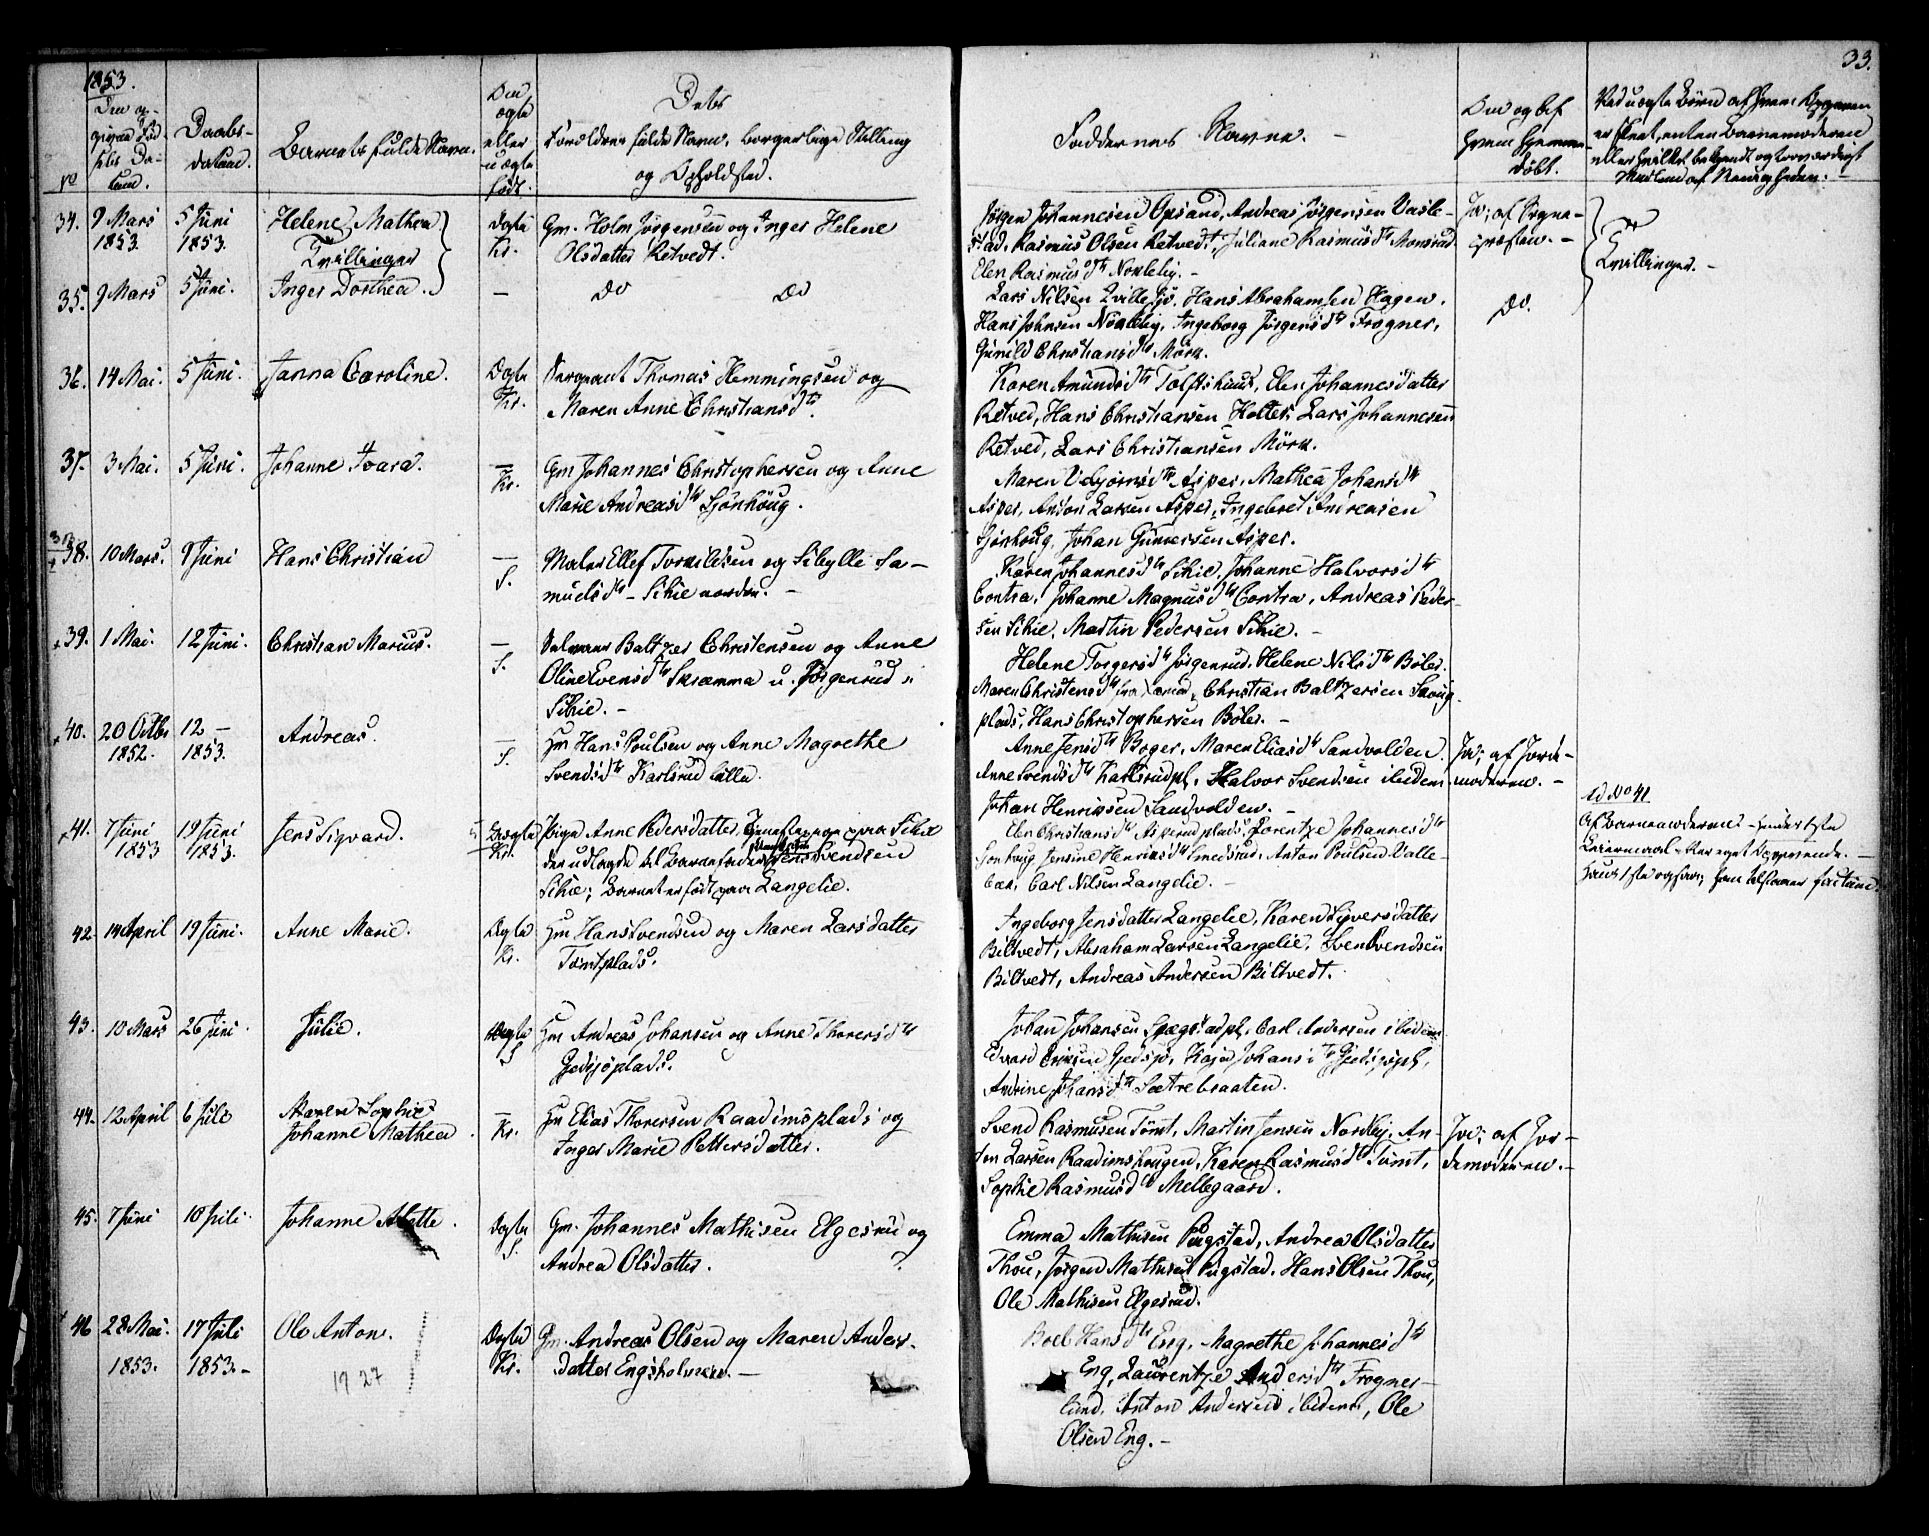 1853.
33.
No
Den op-
givne Fød-
sels Da-
tum.
Daabs-
datum.
Barnets fulde Navn.
Om
ægte
eller
uægte
født.
Dets
Forældres fulde Navn, borgerlige Stilling
og Opholdsted.
Faddernes Navne. -
Om og af
hvem hjemme-
døbt.
34. 9 Mars 5 Juni Helene Mathea Ægte Gm. Holm Jørgensen og Inger Helene
1853. 1853. Tvillinger Kr. Olsdatter Retvedt.
Jørgen Johannesen Opsand, Andreas Jørgensen Vasle-
stad, Rasmus Olsen Retvedt, Juliane Rasmusdtr
Elen Rasmusdtr Nordeby. -
Ja; af Sogne-
præsten. -
Tvillinger. -
35. 9 Mars 5 Juni. Inger Dorthea. - do do
Lars Nilsen Hans Abrahamsen Hagen,
Hans Johnsen Nordeby, Ingeborg Jørgensdtr Frogner,
Gunild Christiansdtr Mörk.
do.
36. 14 Mai. 5 Juni. Janna Caroline. Ægte Sergeant Thomas Hemmingsen og
Kr. Maren Anne Christiansdtr.
Karen Amundsdtr Tofteshuus, Elen Johannesdatter
Retved, Hans Christiansen Holter, Lars Johannesen
Retved, Lars Christiansen Mörk.
37. 3 Mai. 5 Juni. Johanne Ivara. - Gm Johannes Christophersen og Anne
Kr. Marie Andreasdtr Sjönhoug.
Maren Asper, Mathea Johansdtr
Asper, Anton Larsen Asper, Ingebret Andreasen
Sjönhoug, Johan Gunersen Asper.
38. 10 Mars. 9 Juni Hans Christian - Maler Ellef Torkildsen og Sibylle Sa-
S. muelsdtr - Schie nordre. -
Karen Johannesdtr Schie, Johanne Halvorsdtr
Contra, Johanne Magnusdtr Contra, Andreas Peder-
sen Schie, Martin Pedersen Schie. -
39. 1 Mai. 12 Juni. Christian Marius. - Selveier Baltzer Christensen og Anne
S. Oline Evensdtr Skramma u. Jörgenrud u
Schie. -
Helene Torgersdtr Jörgenrud, Helene Nilsdtr Böler.
Maren Christensdtr Christian Baltzersen Skoug-
plads, Hans Christophersen Böler. -
40. 20 Octbr 12 - Andreas. - Hm Hans Poulsen og Anne Magrethe
1852. 1853. S. Svendsdtr Karlsrud lille.
Anne Jensdtr Boger, Maren Eliasdtr Sandvolden
Anne Svendsdtr Karlsrudpl, Halvor Svendsen ibidem
Johan Henriksen Sandvolden. -
Ja; af Jorde-
moderen. -
41. 7 Juni 19 Juni Jens Sigvard. Uægte Pige Anne Pedersdatter, Tjenestepige paa Schie
1853 1853. Kr. der udlagde til Barnefader Jens Svendsen
Schie; Barnet er født paa Langelie.
Elen Christiansdtr Asperudplads, Lorentze Johannesdtr
Sjonhoug, Jensine Henriksdtr Smedsrud, Anton Poulsen Valle-
bæk, Carl Nilsen Langelie. -
Ad No 41
Af Barnemoderen - hendes 1ste
Leiermaal efter eget Opgivende. -
42 14 April 19 Juni. Anne Marie. Ægte Hm Hans Svendsen og Maren Larsdatter
Kr. Tömtplads.
Ingeborg Jensdatter Langelie, Karen Syversdatter
Biltvedt, Abraham Larsen Langelie, Sven Svendsen
Biltvedt, Andreas Andersen Biltvedt.
43. 10 Mars 26 Juni Julie. Ægte Hm Andreas Johansen og Anne Thoresdtr
S Gjedsjöplads.
Johan Johansen Carl Andersen ibidem
Edvard Eriksen Gjedsjö, Kaja Johansdtr Gjedsjöpl,
Andrine Johansdtr Sætrebraaten.
44. 12 April 6 Juli Maren Sophie - Hm Elias Thoresen Raadimsplads og
Johanne Mathea Kr. Inger Marie Pettersdatter.
Svend Rasmusen Tömt, Martin Jensen Nordby, An-
ton Larsen Raadimshougen, Karen Rasmusdtr Tömt,
Sophie Rasmusdtr Mellegaard.
Ja; af Jor-
demoderen. -
45. 7 Juni 10 Juli Johanne Alette. Ægte Gm. Johannes Mathisen Elgesrud og
S. Andrea Olsdatter.
Emma Mathisen Pugstad, Andrea Olsdatter
Thou, Jørgen Mathisen Pugstad, Hans Olsen Thou,
Ole Mathisen Elgesrud.
46 28 Mai. 17 Juli Ole Anton. Ægte Gm. Andreas Olsen og Maren Anders-
1853. 1853. - Kr. datter Engsholmen. -
19 27
Boel Hansdtr Eng, Magrethe Johannesdtr
Eng, Laurentze Andersdtr Frogner-
lund, Anton Andersen ibidem, Ole
Olsen Eng. -